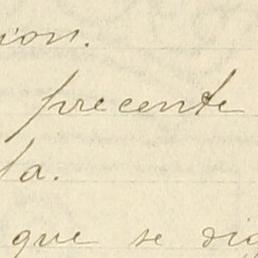 ion.
precente
la.
que se dig